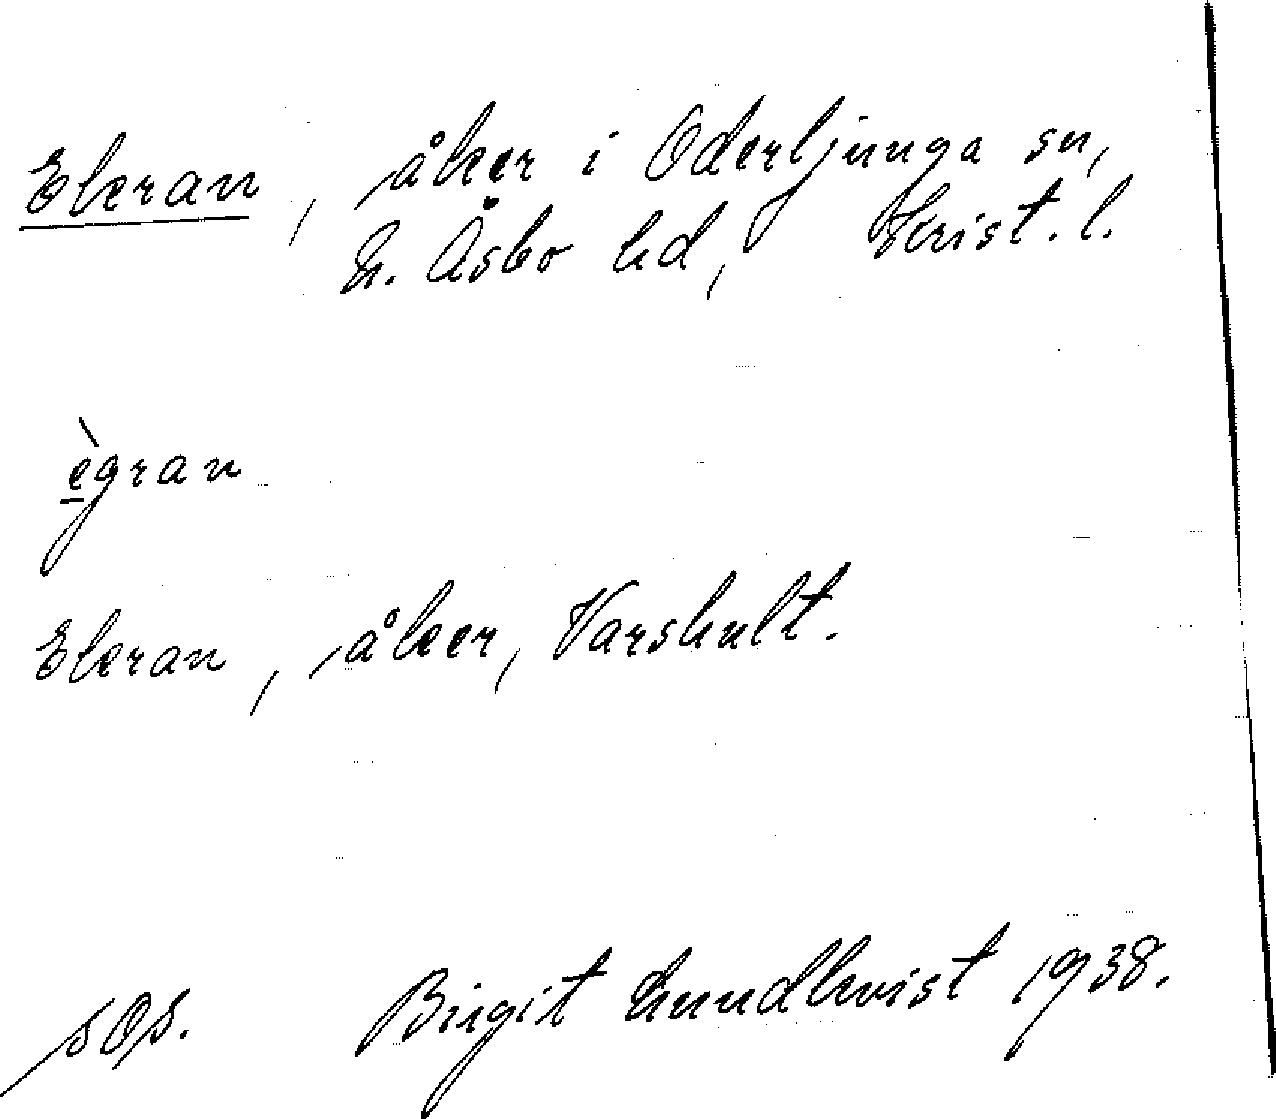 Ekran, åker i Oderljunga sn,
N. Åsbo hd, Krist. l.
ègran
Ekran, åker, Varshult.
Birgit Lundkvist 1938.